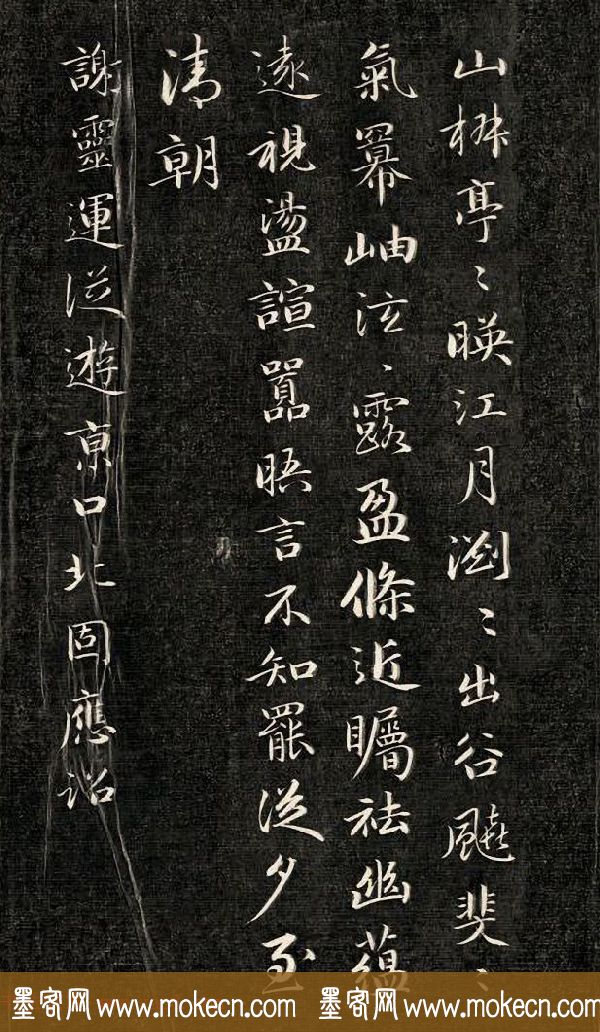 山椒亭〻暎江月瀏〻出谷飈斐〻
氣冪岫泫〻露盈條近矚祛幽蘊
遠視盪諠囂晤言不知罷從夕至
清朝
謝靈運從遊京口北固應詔
墨客网 www.mokecn.com 墨客网 www.mokecn.com